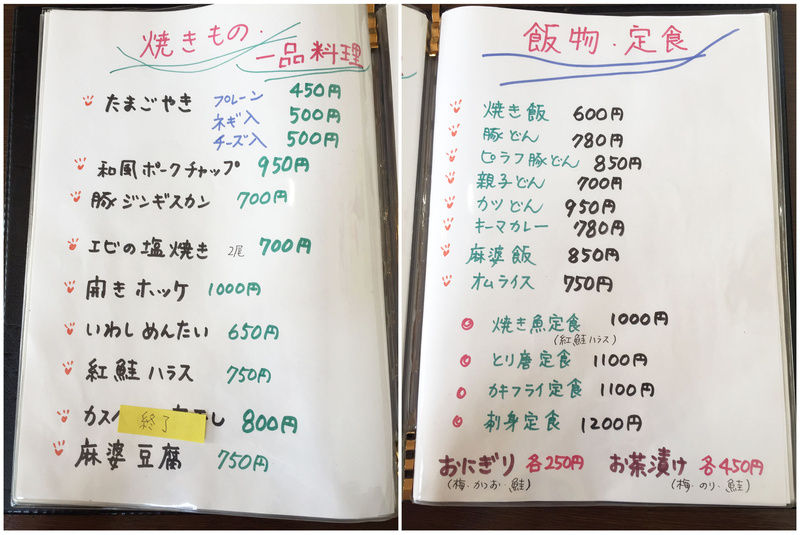 焼きもの・
一品料理
たまごやき プレーン 450円
ネギ入 500円
チーズ入 500円
和風ポークチャップ 950円
豚ジンギスカン 700円
エビの塩焼き 2尾 700円
開きホッケ 1000円
いわしめんたい 650円
紅鮭ハラス 750円
終了 800円
麻婆豆腐 750円
飯物・定食
焼き飯 600円
豚どん 780円
ピラフ豚どん 850円
親子どん 700円
カツどん 950円
キーマカレー 780円
麻婆飯 850円
オムライス 750円
焼き魚定食 1000円
(紅鮭ハラス)
とり磨定食 1100円
カキフライ定食 1100円
刺身定食 1200円
おにぎり 各250円 お茶漬け 各450円
(梅・かつお・鮭) (梅・のり・鮭)